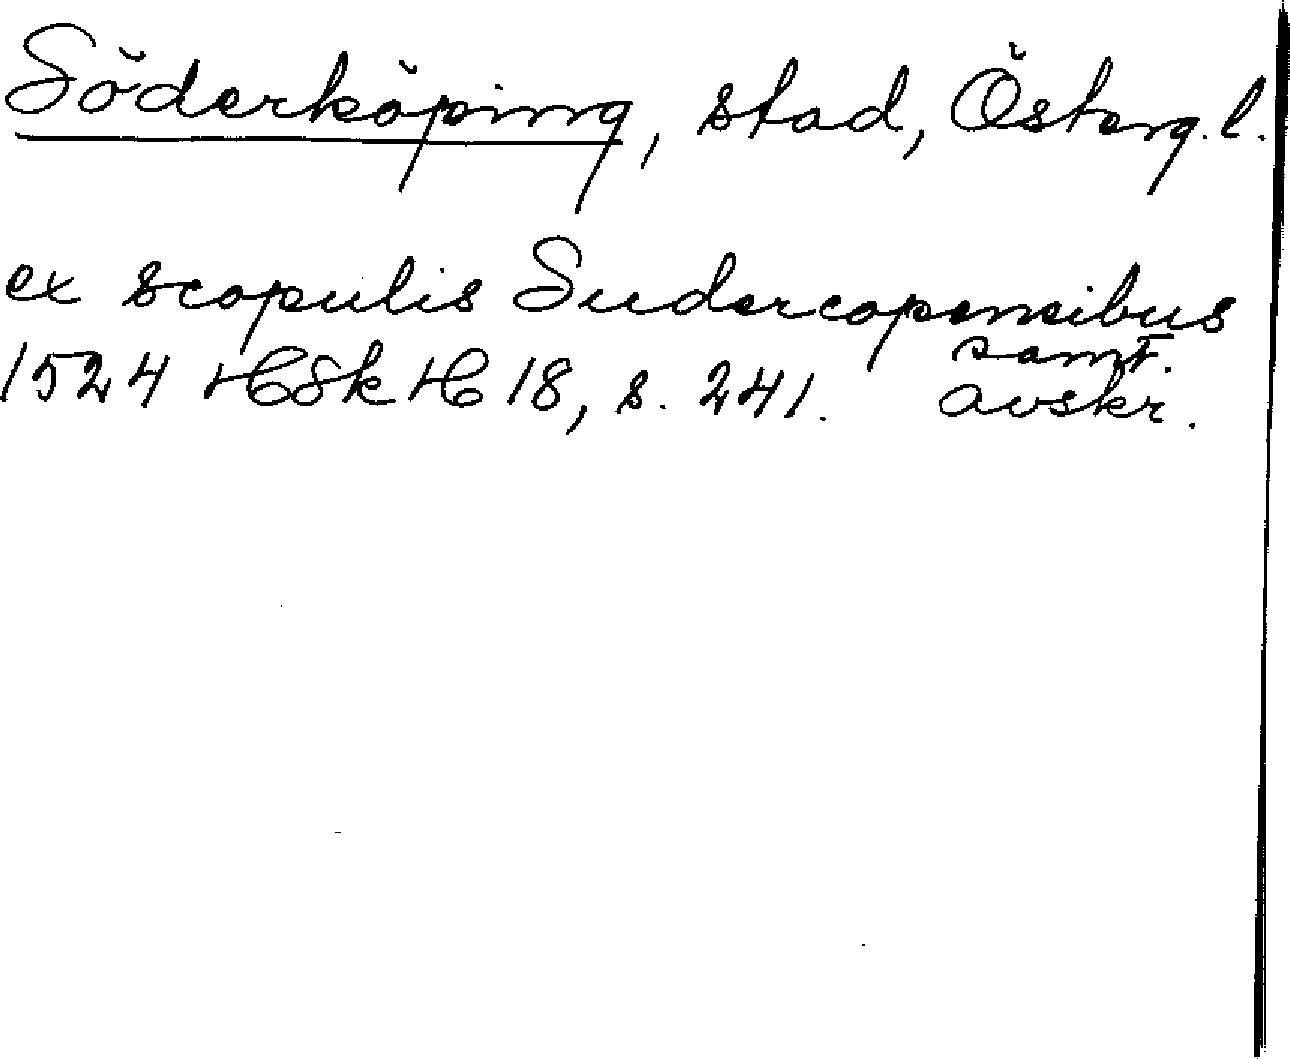 Söderköping, stad, Österg. l.
ex scopulis Sudercopensibus
1524 HSkH 18, s. 241. samt. avskr.